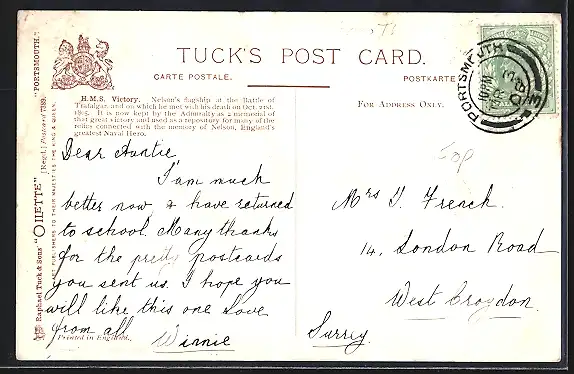 TUCK'S POST CARD.
CARTE POSTALE.
POSTKARTE
FOR ADDRESS ONLY.
H.M.S. Victory. Nelson's flagship at the Battle of
Trafalgar, and on which he met with his death on Oct. 21st,
1805. It is now kept by the Admiralty as a memorial of
that great victory and used as a repository for many of the
relics connected with the memory of Nelson, England's
greatest Naval Hero.
Dear Auntie
I am much
better now & have returned
to school. Many thanks
for the pretty postcards
you sent us. I hope you
will like this one Love
from all
Winnie
Printed in England.
Mrs Y. French.
14, London Road
West Croydon.
Surrey.
PORTSMOUTH
Raphael Tuck & Sons' "OILETTE" [Regd.] Postcard "PORTSMOUTH."
PUBLISHERS TO THEIR MAJESTIES THE KING & QUEEN.